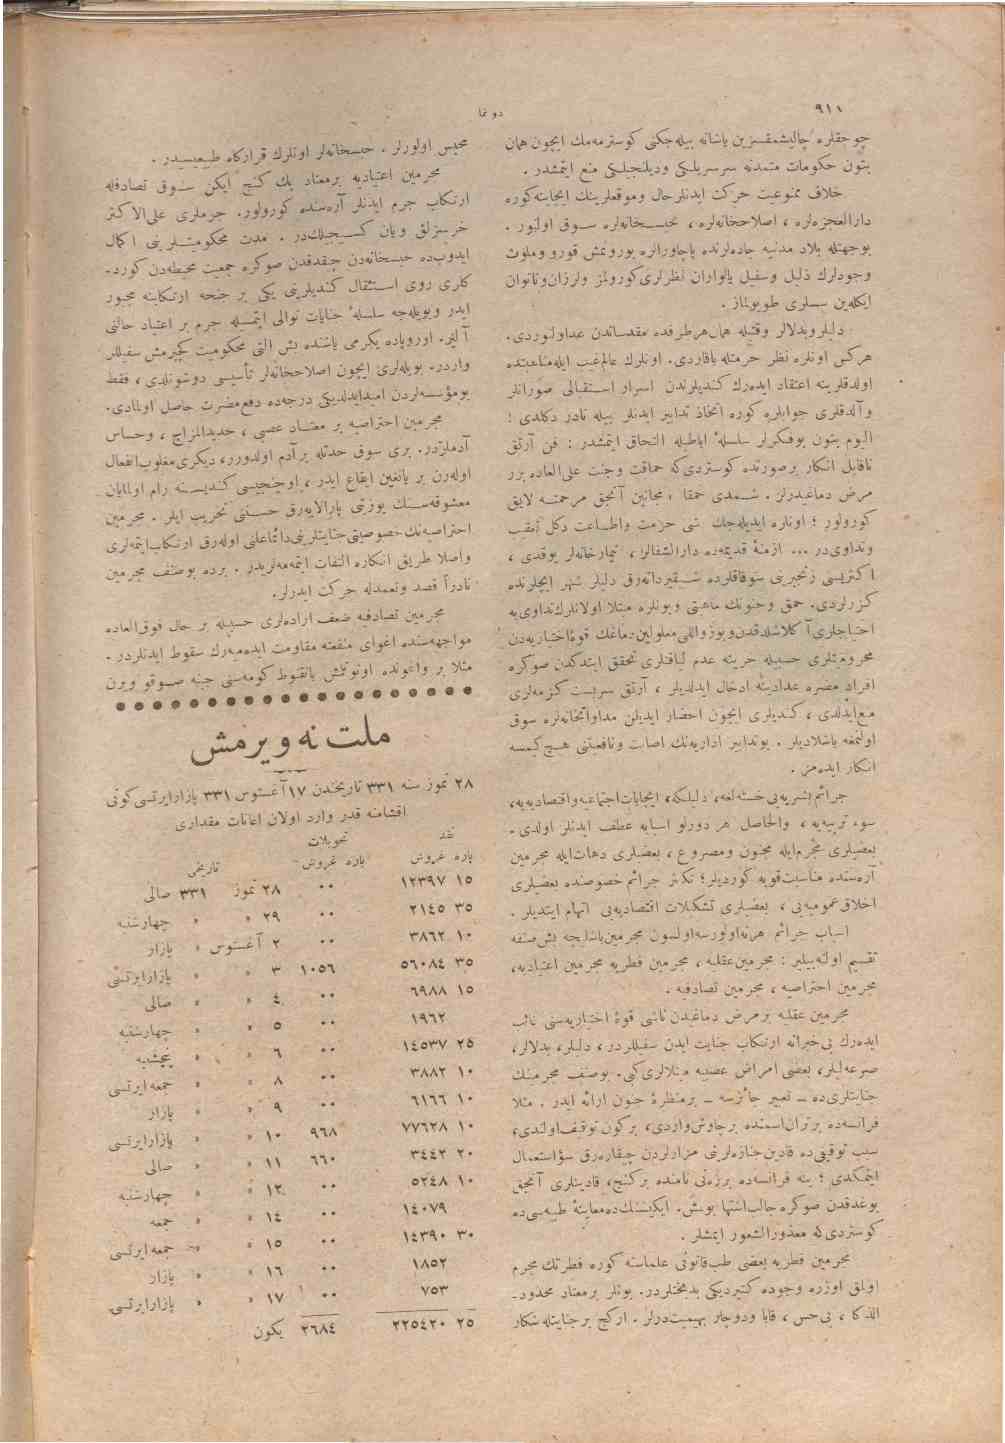 دونما
٩١١
چوجقلره چالیشمقسزین یاشانه بیله‌جكنی كوسترمه‌مك ایچون همان
بتون حكومات متمدنه سرسریلكی ودیلنجیلكی منع ایتمشدر .
خلاف ممنوعیت حركت ایدنلر حال وموقعلرینك ایجابنه كوره
دارالعجزه‌لره ، اصلاحخانه‌لره ، محبسخانه‌لره سوق اولنیور .
بوجهتله بلاد مدنیه جاده‌لرنده پاچاورالره بورونمش قورو وملوث
وجودلرك ذلیل وسفیل یالواران نظرلری كورولمز ولرزان وناتوان
ایكله‌ین سسلری طویولماز .
دلیلر وبدلالر وقتیله همان هر طرفده مقدساتدن عد اولنوردی.
هركس اونلره نظر حرمتله باقاردی. اونلرك عالم غیب ایله مناسبتده
اولدقلرینه اعتقاد ایده‌رك كندیلرندن اسرار استقبالی صورانلر
و آلدقلری جوابلره كوره اتخاذ تدابیر ایدنلر بیله نادر دكلدی !
الیوم بتون بوفكرلر سلسلهٔ اباطیله التحاق ایتمشدر : فن آرتق
ناقابل انكار بر صورتده كوستردی كه حماقت وجنت علی العاده برر
مرض دماغیدرلر . شمدی حمقا ، مجانین آنجق مرحمته لایق
كورولور ؛ اونلره ایدیله‌جك شی حرمت واطاعت دكل تعقیب
وتداوی‌در ... ازمنهٔ قدیمه‌ده دارالشفالر ، تیمارخانه‌لر یوقدی ،
اكثریسی زنجیرینی سوقاقلرده شقیرداته‌رق دلیلر شهر ایچلرنده
كزرلردی. حمق وجنونك ماهیتی وبونلره مبتلا اولانلرك تداوی‌یه
احتیاجلری آكلاشلدقدن وبوزواللی معلولین دماغك قوهٔ اختیاریه‌دن
محرومیتلری حسبیله حریته عدم لیاقتلری تحقق ایتدكدن صوكره
افراد مضره عدادینه ادخال ایدلدیلر ، آرتق سربست كزمه‌لری
منع ایدلدی ، كندیلری ایچون احضار ایدیلن مداواتخانه‌لره سوق
اولنمغه باشلادیلر . بوتدابیر اداریه‌نك اصابت ونافعیتنی هیچ كیمسه
انكار ایده‌مز .
جرائم بشریه‌یی خسته‌لغه، دلیلكه، ایجابات اجتماعیه واقتصادیه‌یه،
سوء تربیه‌یه ، والحاصل هر دورلو اسبابه عطف ایدنلر اولدی .
بعضیلری مجرم ایله مجنون ومصروع ، بعضیلری دهات ایله مجرمین
آره‌سنده مناسبت قویه كوردیلر؛ تكثر جرائم خصوصنده بعضیلری
اخلاق عمومیه‌یی ، بعضیلری تشكیلات اقتصادیه‌یی اتهام ایتدیلر .
اسباب جرائم هرنه اولورسه اولسون مجرمین باشلیجه بش صنفه
تقسیم اولنه‌بیلیر : مجرمین عقلیه ، مجرمین فطریه مجرمین اعتیادیه،
مجرمین احتراصیه ، مجرمین تصادفیه .
مجرمین عقلیه بر مرض دماغیدن ناشی قوهٔ اختیاریه‌سنی غائب
ایده‌رك بی‌خبرانه ارتكاب جنایت ایدن سفیللردر، دلیلر، بدلالر،
صرعه‌لیلر، بعضی امراض عصبیه مبتلالری كبی. بوصنف مجرمینك
جنایتلری‌ده ــ تعبیر جائزسه ــ بر منظرهٔ جنون ارائه ایدر . مثلا
فرانسه‌ده برتران اسمنده بر چاوش واردی، بركون توقیف اولندی،
سبب توقیفی‌ده قادین جنازه‌لرینی مزارلردن چیقاره‌رق سؤ استعمال
ایتمكدی ؛ ینه فرانسه‌ده برژه‌نی نامنده بر كنج، قادینلری آنجق
بوغدقدن صوكره جالب اشتها بولمش. ایكیسنك‌ده معاینهٔ طبیه‌سی‌ده
كوستردی كه معذورالشعور ایمشلر .
مجرمین فطریه بعضی طب قانونی علماسنه كوره فطرتك مجرم
اولمق اوزره وجوده كتیردیكی بدبختلردر. بونلر بر معتاد محدود-
الذكا ، بی‌حس ، قابا ودوچار بهیمیت‌درلر . اركیج بر جنایتله شكار
محبس اولورلر . حبسخانه‌لر اونلرك قرارگاه طبیعیسیدر .
مجرمین اعتیادیه بر معتاد پك كنج ایكن سوق تصادفله
ارتكاب جرم ایدنلر آره‌سنده كورولور. جرملری علی الاكثر
خرسزلق ویان كسیجیلك‌در . مدت محكومیتلرینی اكمال
ایدوب‌ده حبسخانه‌دن چیقدقدن صوكره جمعیت محیطه‌دن كورد-
كلری روی استثقال كندیلرینی یكی بر جنحه ارتكابنه مجبور
ایدر وبویله‌جه سلسلهٔ جنایات توالی ایتمسیله جرم بر اعتیاد حالنی
آلیر. اوروپاده یكرمی یاشنده بش التی محكومیت كچیرمش سفیللر
واردر. بویله‌لری ایچون اصلاحخانه‌لر تأسیسی دوشونلدی ، فقط
بومؤسسه‌لردن امید ایدلدیكی درجه‌ده دفع مضرت حاصل اولمادی.
مجرمین احتراصیه بر معتاد عصبی ، حدیدالمزاج ، وحساس
آدملردر. بری سوق حدتله بر آدم اولدورر، دیكری مغلوب انفعال
اوله‌رق بر یانغین ایقاع ایدر ، اوچنجیسی كندیسنه رام اولمایان
معشوقه‌سنك یوزینی پارالایه‌رق حسننی تخریب ایلر . مجرمین
احتراصیه‌نك خصوصیتی جنایتلرینی دائما علنی اوله‌رق ارتكاب ایتمه‌لری
واصلا طریق انكاره التفات ایتمه‌مه‌لریدر . برده بوصنف مجرمین
نادراً قصد وتعمدله حركت ایدرلر.
مجرمین تصادفیه ضعف اراده‌لری حسبیله بر حال فوق العاده
مواجهه‌سنده اغوای منفعته مقاومت ایده‌میه‌رك سقوط ایدنلردر .
مثلا بر واغونده اونوتلمش بانقنوط كومه‌سنی جیبنه صوقو ویرن
ملت نه ویرمش
٢٨ تموز سنه ٣٣١ تاریخندن ١٧ آغستوس ٣٣١ پازارایرتسی كونی
اقشامنه قدر وارد اولان اعانات مقداری
نقد تحویلات
پاره غروش پاره غروش تاریخی
١٥ ١٢٣٩٧ ٠٠ ٢٨ تموز ٣٣١ صالی
٣٥ ٢١٤٥ ٠٠ ٢٩ » » چهارشنبه
١٠ ٣٨٦٢ ٠٠ ٢ آغستوس » پازار
٣٥ ٥٦٠٨٤ ١٠٥٦ ٣ » » پازارایرتسی
١٥ ٦٩٨٨ ٠٠ ٤ » » صالی
١٩٦٢ ٠٠ ٥ » » چهارشنبه
٢٥ ١٤٥٣٧ ٠٠ ٦ » » پنچشنبه
١٠ ٣٨٨٢ ٠٠ ٨ » » جمعه ایرتسی
١٠ ٦١٦٦ ٠٠ ٩ » » پازار
١٠ ٧٧٦٢٨ ٩٦٨ ١٠ » » پازارایرتسی
٢٠ ٣٤٤٢ ٦٦٠ ١١ » » صالی
١٠ ٥٢٤٨ ٠٠ ١٢ » » چهارشنبه
١٤٠٧٩ ٠٠ ١٤ » » جمعه
٣٠ ١٤٣٩٠ ٠٠ ١٥ » » جمعه ایرتسی
١٨٥٢ ٠٠ ١٦ » » پازار
٧٥٣ ٠٠ ١٧ » » پازارایرتسی
٢٥ ٢٢٥٤٢٠ ٢٦٨٤ یكون